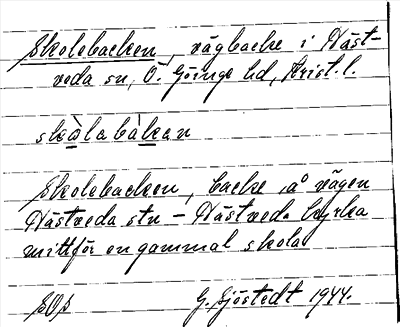 Skolebacken, vägbacke i Häst-
veda sn, Ö. Göinge hd, Krist. l.
skòlabàkan
Skolebacken, backe å vägen
Hästveda stn - Hästveda kyrka
mittför en gammal skola
G. Sjöstedt 1944.